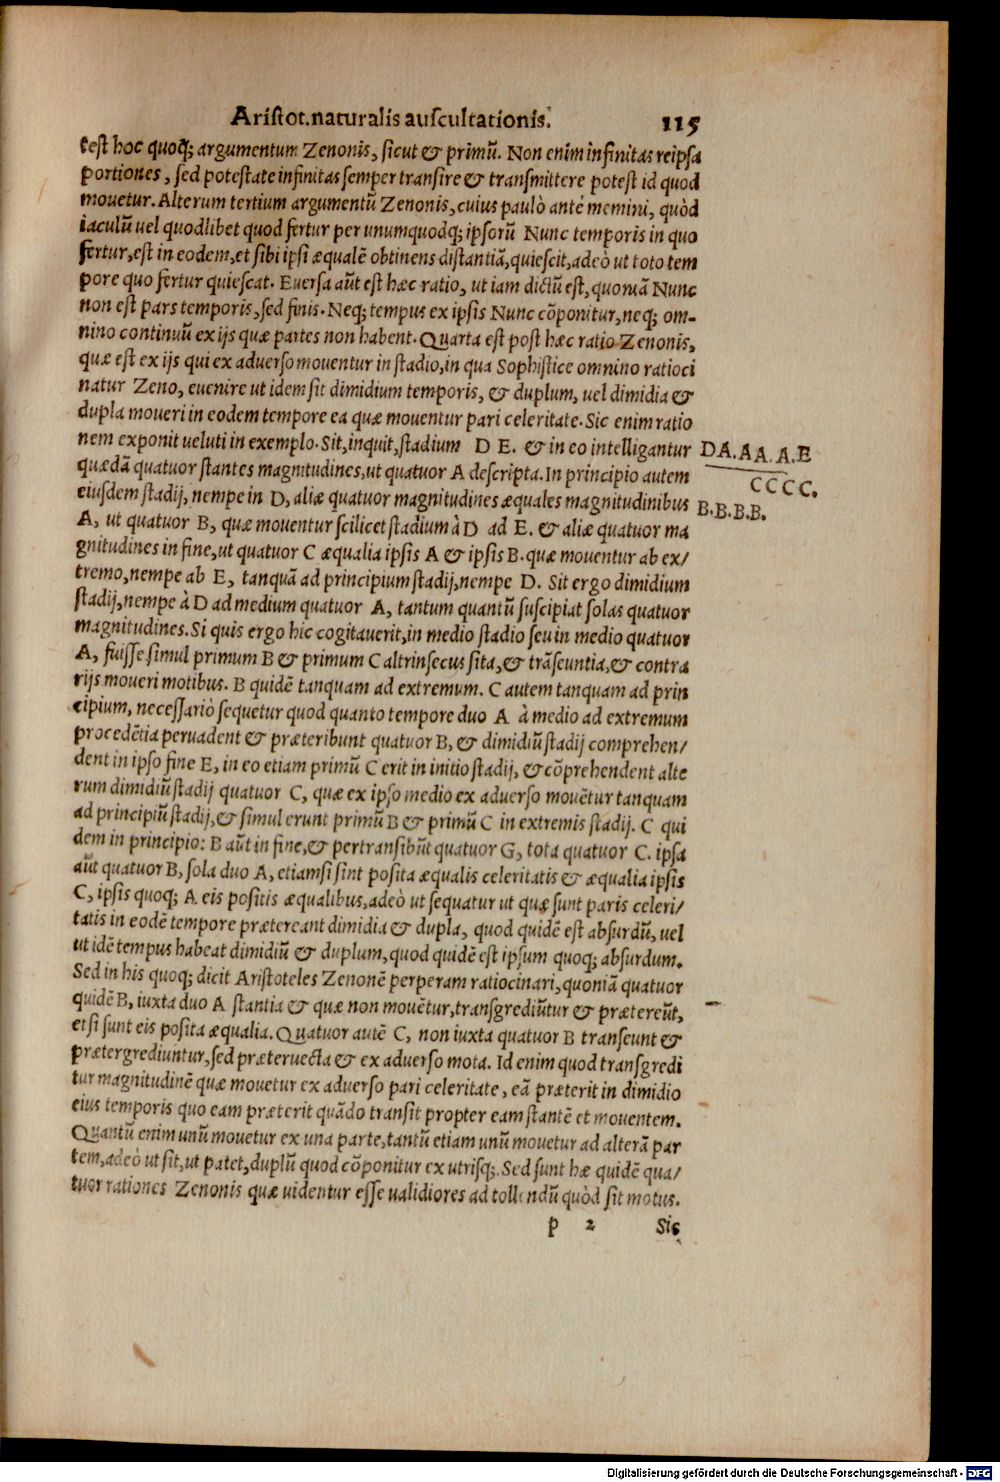 Aristot.naturalis auscultationis. 115
test hoc quoq; argumentum Zenonis, sicut & primũ. Non enim infinitas reipsa
portiones, sed potestate infinitas semper transire & transmittere potest id quod
mouetur. Alterum tertium argumentũ Zenonis, cuius paulò antè memini, quòd
iaculũ vel quodlibet quod fertur per unumquodq; ipsorũ Nunc temporis in quo
fertur, est in eodem, et sibi ipsi æqualē obtinens distantiā, quiescit, adeò ut toto tem
pore quo fertur quiescat. Euersa aũt est hæc ratio, ut iam dictũ est, quoniā Nunc
non est pars temporis, sed finis. Neq; tempus ex ipsis Nunc cōponitur, neq; om-
nino continuũ ex ijs quæ partes non habent. Quarta est post hæc ratio Zenonis,
quæ est ex ijs qui ex aduerso mouentur in stadio, in qua Sophistice omnino ratioci
natur Zeno, euenire ut idem sit dimidium temporis, & duplum, uel dimidia &
dupla moueri in eodem tempore ea quæ mouentur pari celeritate. Sic enim ratio
nem exponit ueluti in exemplo. Sit, inquit, stadium D E. & in eo intelligantur
quædā quatuor stantes magnitudines, ut quatuor A descripta. In principio autem
eiusdem stadij, nempe in D, aliæ quatuor magnitudines æquales magnitudinibus
A, ut quatuor B, quæ mouentur scilicet stadium à D ad E. & aliæ quatuor ma
gnitudines in fine, ut quatuor C æqualia ipsis A & ipsis B. quæ mouentur ab ex/
tremo, nempe ab E, tanquā ad principium stadij, nempe D. Sit ergo dimidium
stadij, nempe à D ad medium quatuor A, tantum quantũ suscipiat solas quatuor
magnitudines. Si quis ergo hic cogitauerit, in medio stadio seu in medio quatuor
A, fuisse simul primum B & primum C altrinsecus sita, & trāseuntia, & contra
rijs moueri motibus. B quidē tanquam ad extremum. C autem tanquam ad prin
cipium, necessariò sequetur quod quanto tempore duo A à medio ad extremum
procedētia peruadent & præteribunt quatuor B, & dimidiũ stadij comprehen/
dent in ipso fine E, in eo etiam primũ C erit in initio stadij, & cōprehendent alte
rum dimidiũ stadij quatuor C, quæ ex ipso medio ex aduerso mouētur tanquam
ad principiũ stadij, & simul erunt primũ B & primũ C in extremis stadij. C qui
dem in principio: B aũt in fine, & pertransibũt quatuor G, tota quatuor C. ipsa
aũt quatuor B, sola duo A, etiamsi sint posita æqualis celeritatis & æqualia ipsis
C, ipsis quoq; A eis positis æqualibus, adeò ut sequatur ut quæ sunt paris celeri/
tatis in eodē tempore prætereant dimidia & dupla, quod quidē est absurdũ, uel
ut idē tempus habeat dimidiũ & duplum, quod quidē est ipsum quoq; absurdum.
Sed in his quoq; dicit Aristoteles Zenonē perperam ratiocinari, quoniā quatuor
quidē B, iuxta duo A stantia & quæ non mouētur, transgrediũtur & prætereũt,
etsi sunt eis posita æqualia. Quatuor autē C, non iuxta quatuor B transeunt &
prætergrediuntur, sed præteruecta & ex aduerso mota. Id enim quod transgredi
tur magnitudinē quæ mouetur ex aduerso pari celeritate, eā præterit in dimidio
eius temporis quo eam præterit quādo transit propter eam stantē et mouentem.
Quantũ enim unũ mouetur ex una parte, tantũ etiam unũ mouetur ad alterā par
tem, adeò ut sit, ut patet, duplũ quod cōponitur ex utrisq;. Sed sunt hæ quidē qua/
tuor rationes Zenonis quæ uidentur esse ualidiores ad tollendũ quòd sit motus.
p 2 Sic
D A. A A. A. E
C C C C.
B. B. B. B.
Digitalisierung gefördert durch die Deutsche Forschungsgemeinschaft - DFG